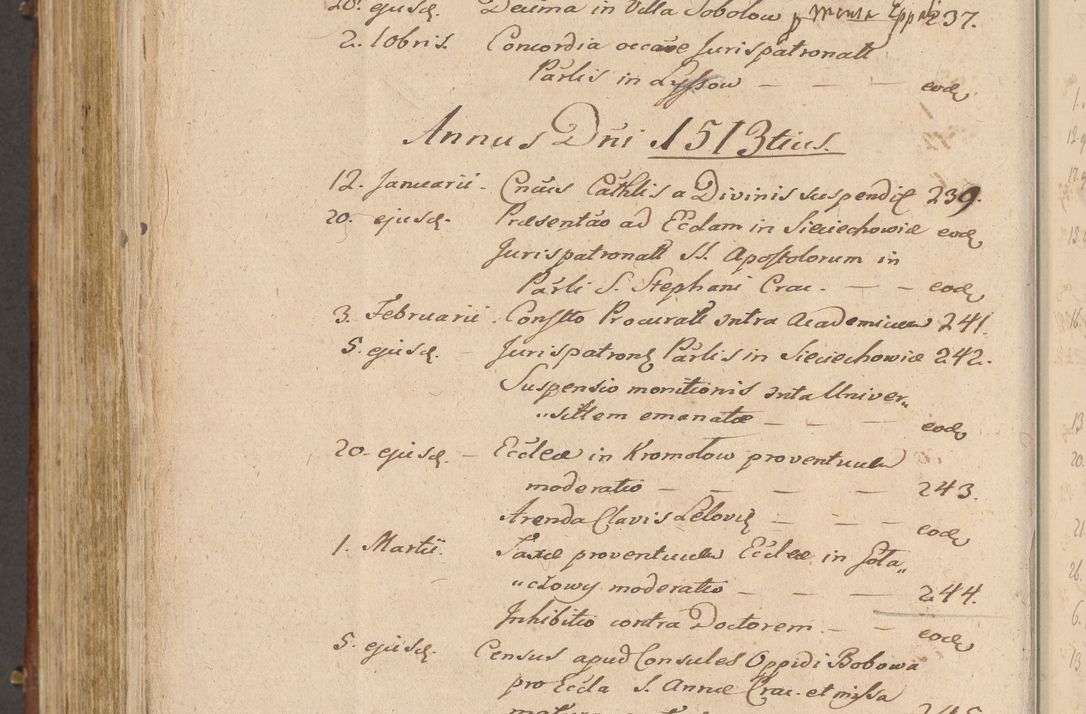 20. ejusd. Decima in Villa Sobolow p mensa Eppali 237.
2. 10bris. Concordia occāoe Jurispatronatt
Pārlis in Lyssow — — — eode
Annus Dn̄i 1513tius.
12. Januarii. Cnāus Cāthlis a Divinis suspendit 239.
20. ejusd. Præsentāo ad Eccl̄am in Sieciechowiæ eode
Jurispatronatt SS. Apostolorum in
Pārli S. Stephani Crac. — — eode
3. Februarii. Constto Procurati intra Academicum 241.
5. ejusd. — Jurispatrond Pārlis in Sieciechowiæ 242.
Suspensio monitionis inta Univer„
„sittem emanatæ — — — eode
20. ejusd. — Eccl̄eæ in Kromolow proventuum
moderatio — — — — 243.
Arenda Clavis Lelovie — — — eode
1. Martii. Taxæ proventuum Eccl̄eæ in Gola„
„czowy moderatio — — — 244.
Inhibitio contra Doctorem — — eode
5. ejusd. Census apud Consules Oppidi Bobowa
pro Eccl̄a S. Annæ Crac. et missa